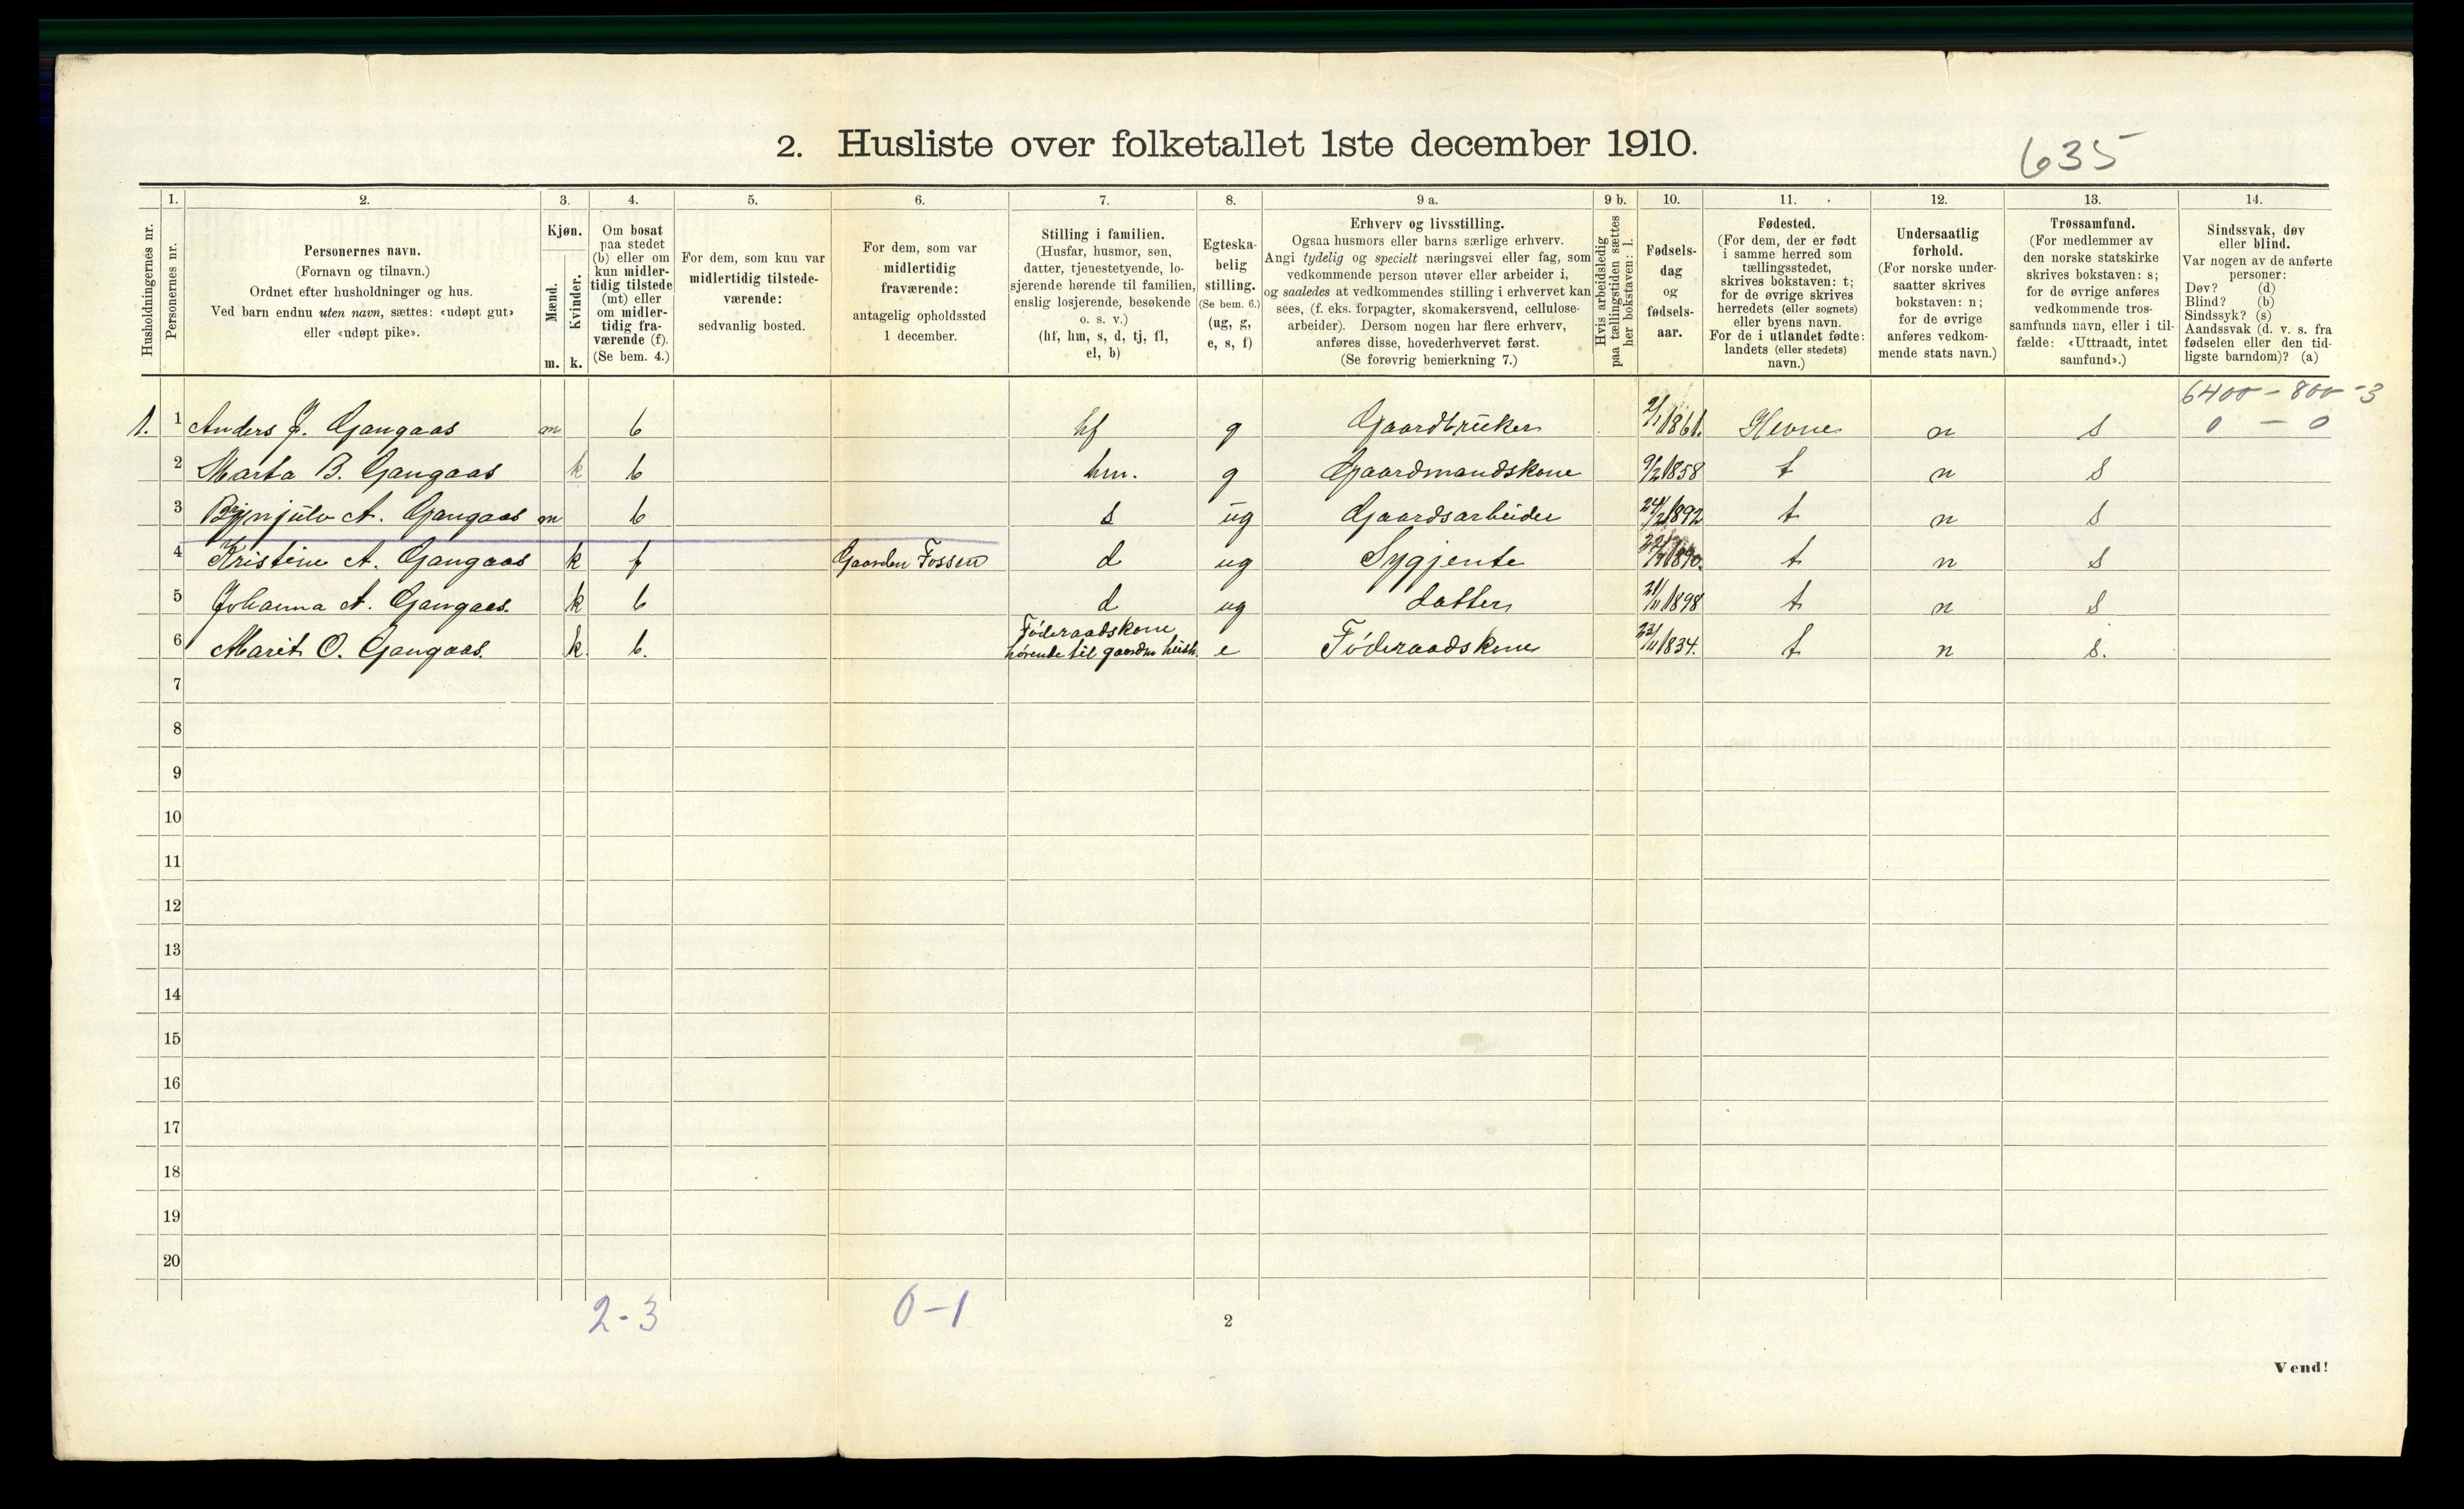 2. Husliste over folketallet 1ste december 1910.
635
Husholdningernes nr.
1.
Personernes nr.
2.
Personernes navn.
(Fornavn og tilnavn.)
Ordnet efter husholdninger og hus.
Ved barn endnu uten navn, sættes: «udøpt gut»
eller «udøpt pike».
3.
Kjøn.
Mænd.
Kvinder.
m. k.
4.
Om bosat
paa stedet
(b) eller om
kun midler-
tidig tilstede
(mt) eller
om midler-
tidig fra-
værende (f).
(Se bem. 4.)
5.
For dem, som kun var
midlertidig tilstede-
værende:
sedvanlig bosted.
6.
For dem, som var
midlertidig
fraværende:
antagelig opholdssted
1 december.
7.
Stilling i familien.
(Husfar, husmor, søn,
datter, tjenestetyende, lo-
sjerende hørende til familien,
enslig losjerende, besøkende
o. s. v.)
(hf, hm, s, d, tj, fl,
el, b)
8.
Egteska-
belig
stilling.
(Se bem. 6.)
(ug, g,
e, s, f)
9 a.
Erhverv og livsstilling.
Ogsaa husmors eller barns særlige erhverv.
Angi tydelig og specielt næringsvei eller fag, som
vedkommende person utøver eller arbeider i,
og saaledes at vedkommendes stilling i erhvervet kan
sees, (f. eks. forpagter, skomakersvend, cellulose-
arbeider). Dersom nogen har flere erhverv,
anføres disse, hovederhvervet først.
(Se forøvrig bemerkning 7.)
9 b.
Hvis arbeidsledig
paa tællingstiden sættes
her bokstaven: l.
10.
Fødsels-
dag
og
fødsels-
aar.
11.
Fødested.
(For dem, der er født
i samme herred som
tællingsstedet,
skrives bokstaven: t;
for de øvrige skrives
herredets (eller sognets)
eller byens navn.
For de i utlandet fødte:
landets (eller stedets)
navn.)
12.
Undersaatlig
forhold.
(For norske under-
saatter skrives
bokstaven: n;
for de øvrige
anføres vedkom-
mende stats navn.)
13.
Trossamfund.
(For medlemmer av
den norske statskirke
skrives bokstaven: s;
for de øvrige anføres
vedkommende tros-
samfunds navn, eller i til-
fælde: «Uttraadt, intet
samfund».)
14.
Sindssvak, døv
eller blind.
Var nogen av de anførte
personer:
Døv? (d)
Blind? (b)
Sindssyk? (s)
Aandssvak (d. v. s. fra
fødselen eller den tid-
ligste barndom)? (a)
6400 - 800 - 3
0 - 0
1. 1 Anders J. Gangaas m b hf g Gaardbruker 2/1 1861. Hevne n s
2 Marta B. Gangaas k b hm. g Gaardmandskone 9/2 1858 t n s
3 Brynjulv A. Gangaas m b s ug Gaardsarbeider 1892 t n s
4 Kristine A. Gangaas k f Gaarden Fossen d ug Sygjente 1890. t n s
5 Johanna A. Gangaas. k b d ug datter 21/11 1898 t n s
6 Marit O. Gangaas. k. b. Føderaadskone
hørende til gaardens e Føderaadskone 23/11 1834. t n s.
7
8
9
10
11
12
13
14
15
16
17
18
19
20
2-3
0-1
2
Vend!